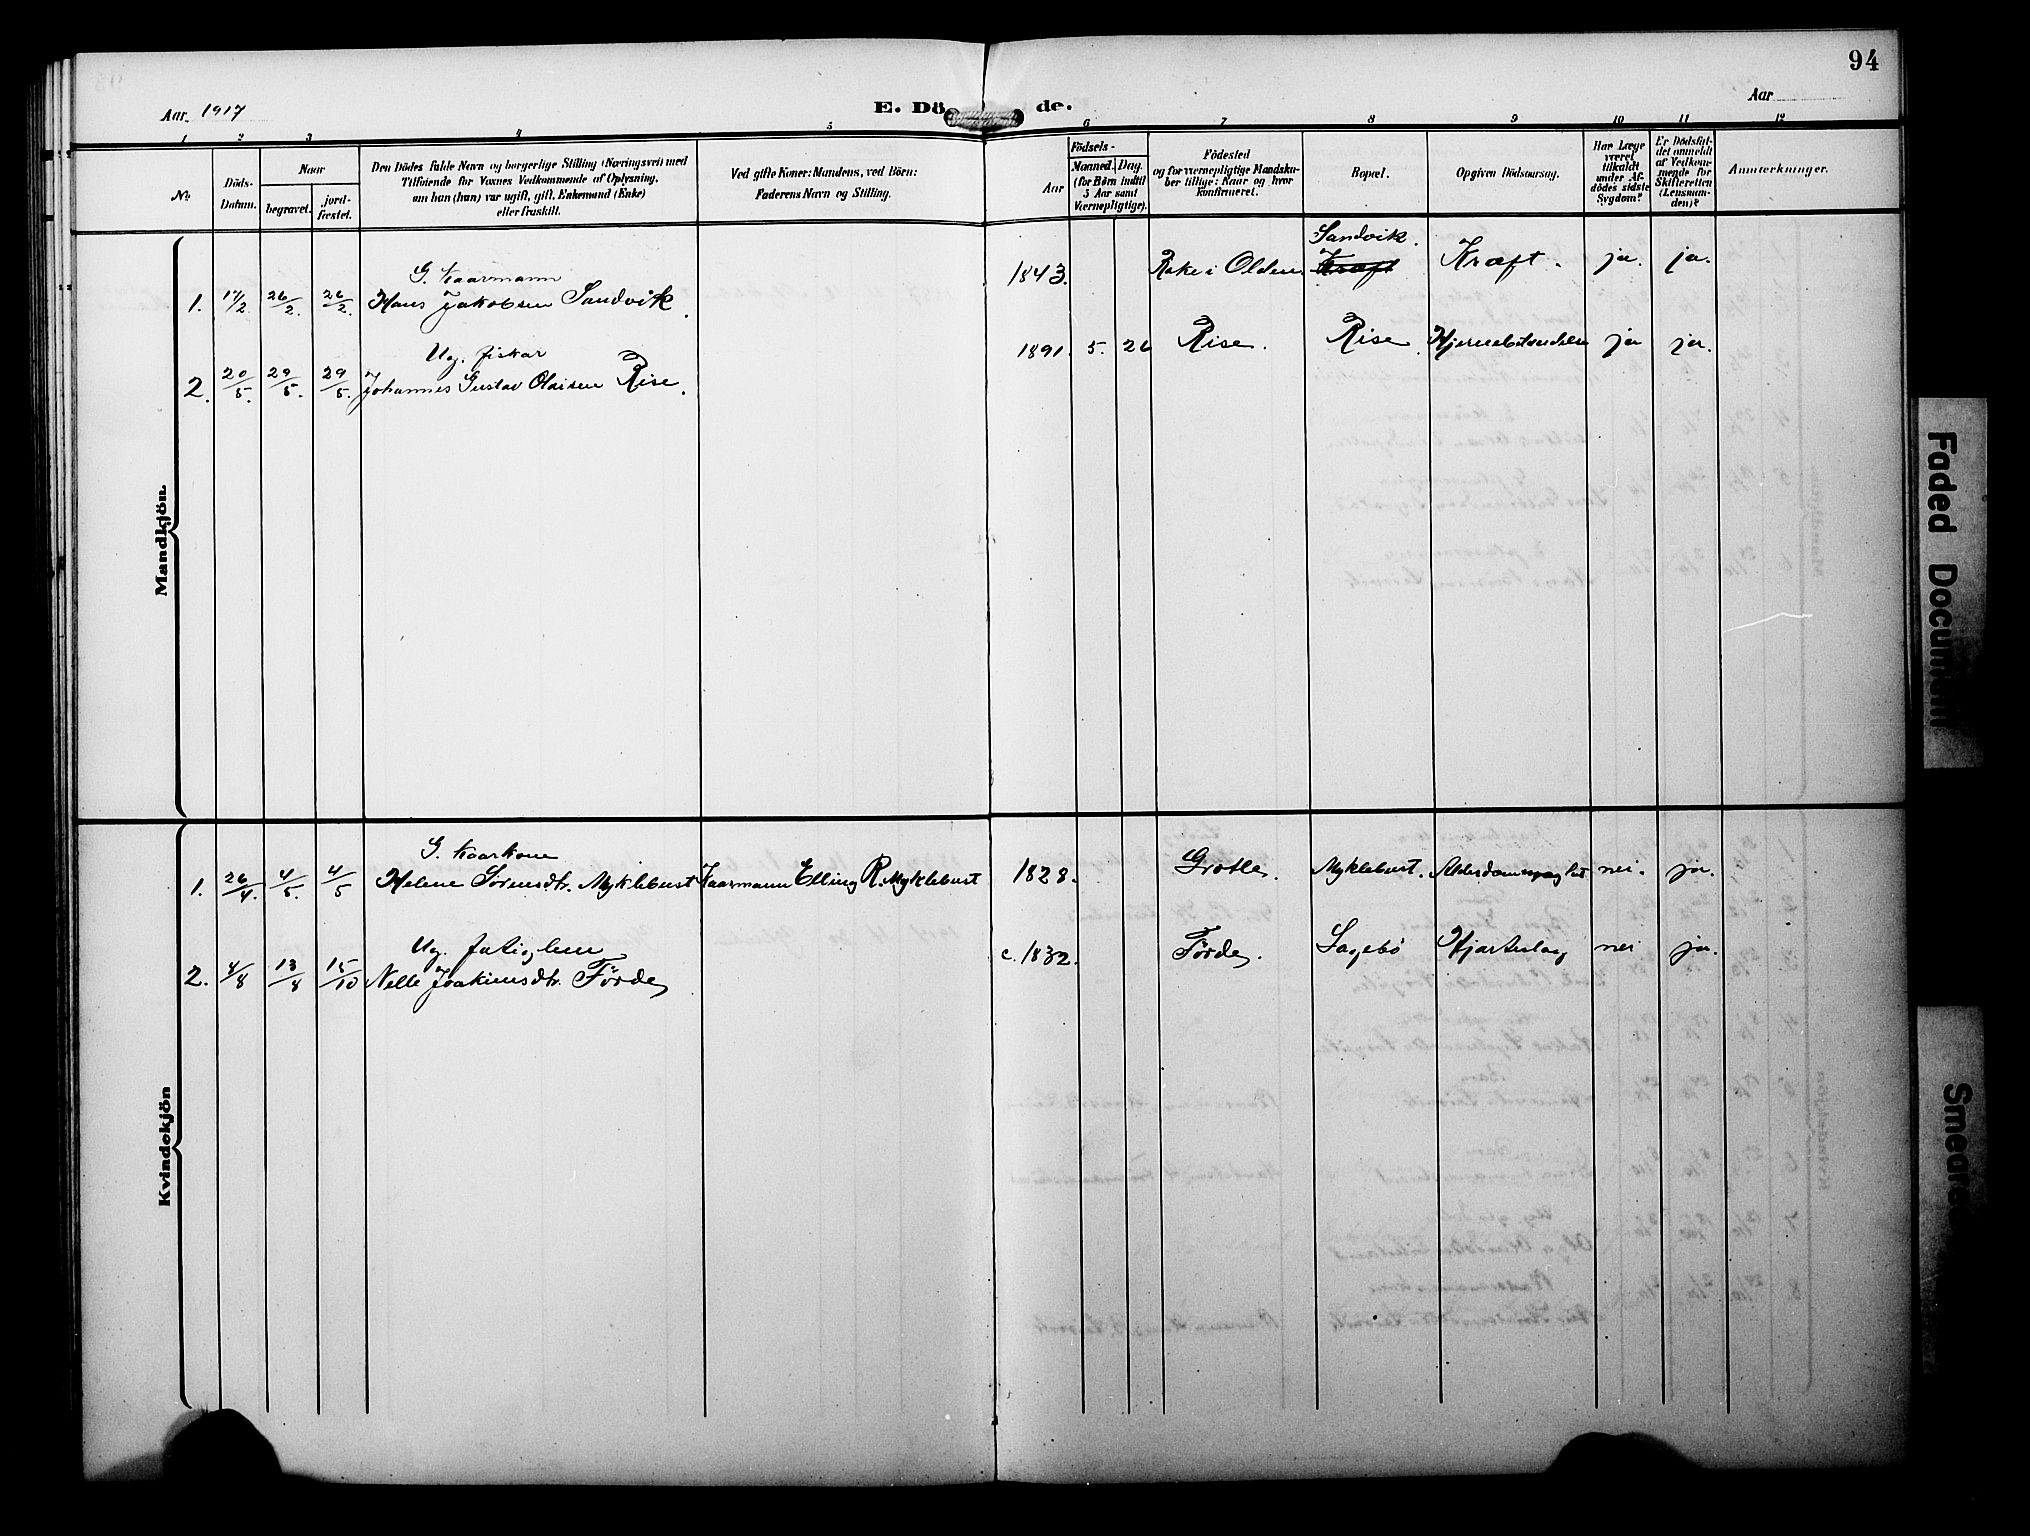 94
Aar 1917
E. Dö de.
Aar
1 2 3 4 5 6 7 8 9 10 11 12
No.
Döds-Datum.
Naar
begravet.
jord-fæstet.
Den Dödes fulde Navn og borgerlige Stilling (Næringsvei) med
Tilföiende for Voxnes Vedkommende af Oplysning,
om han (hun) var ugift, gift, Enkemand (Enke)
eller fraskilt.
Ved gifte Koner: Mandens, ved Börn:
Faderens Navn og Stilling.
Aar
Födsels-
Maaned. Dag.
(for Börn indtil
5 Aar samt
Værnepligtige).
Födested
og for værnepligtige Mandsku-
ber tillige: Naar og hvor
konfirmeret.
Bopæl.
Opgiven Dödsaarsag.
Har Læge
været
tilkaldt
under Af-
dödes sidste
Sygdom?
Er Dödsfal-
det anmeldt
af Vedkom-
mende for
Skifteretten
(Lensman-
den)?
Anmærkninger.
Mandkjön.
G. kaarmann
1. 17/2 26/2. 26/2. Hans Jakobsen Sandvik. 1843. Rake i Olden Sandvik. Kræft Kræft. ja. ja.
Ug. fiskar
2. 20/5. 29/5. 29/5. Johannes Gustav Olaisen Rise. 1891. 5. 26 Rise. Rise ja ja.
Kvindekjön
G. kaarkone
1. 26/4. 4/5. 4/5 Helene Sörensdtr. Myklebust Kaarmann Elling R. Myklebust 1828. Grotle. Myklebust. nei. ja.
Ug. fatiglem
2. 4/8 13/8 15/10 Nelle Joakimsdtr. Förde c. 1832. Förde. Sagebö Hjarteslag nei ja.
Faded Document
Smeared